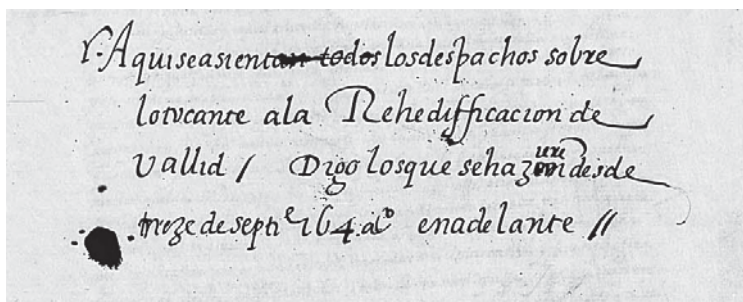 Y. Aqui se asientan todos los despachos sobre
lo tocante a la Rehedifficacion de
Vallid / Digo los que se hazen desde
treze de septie 164 ao en adelante //